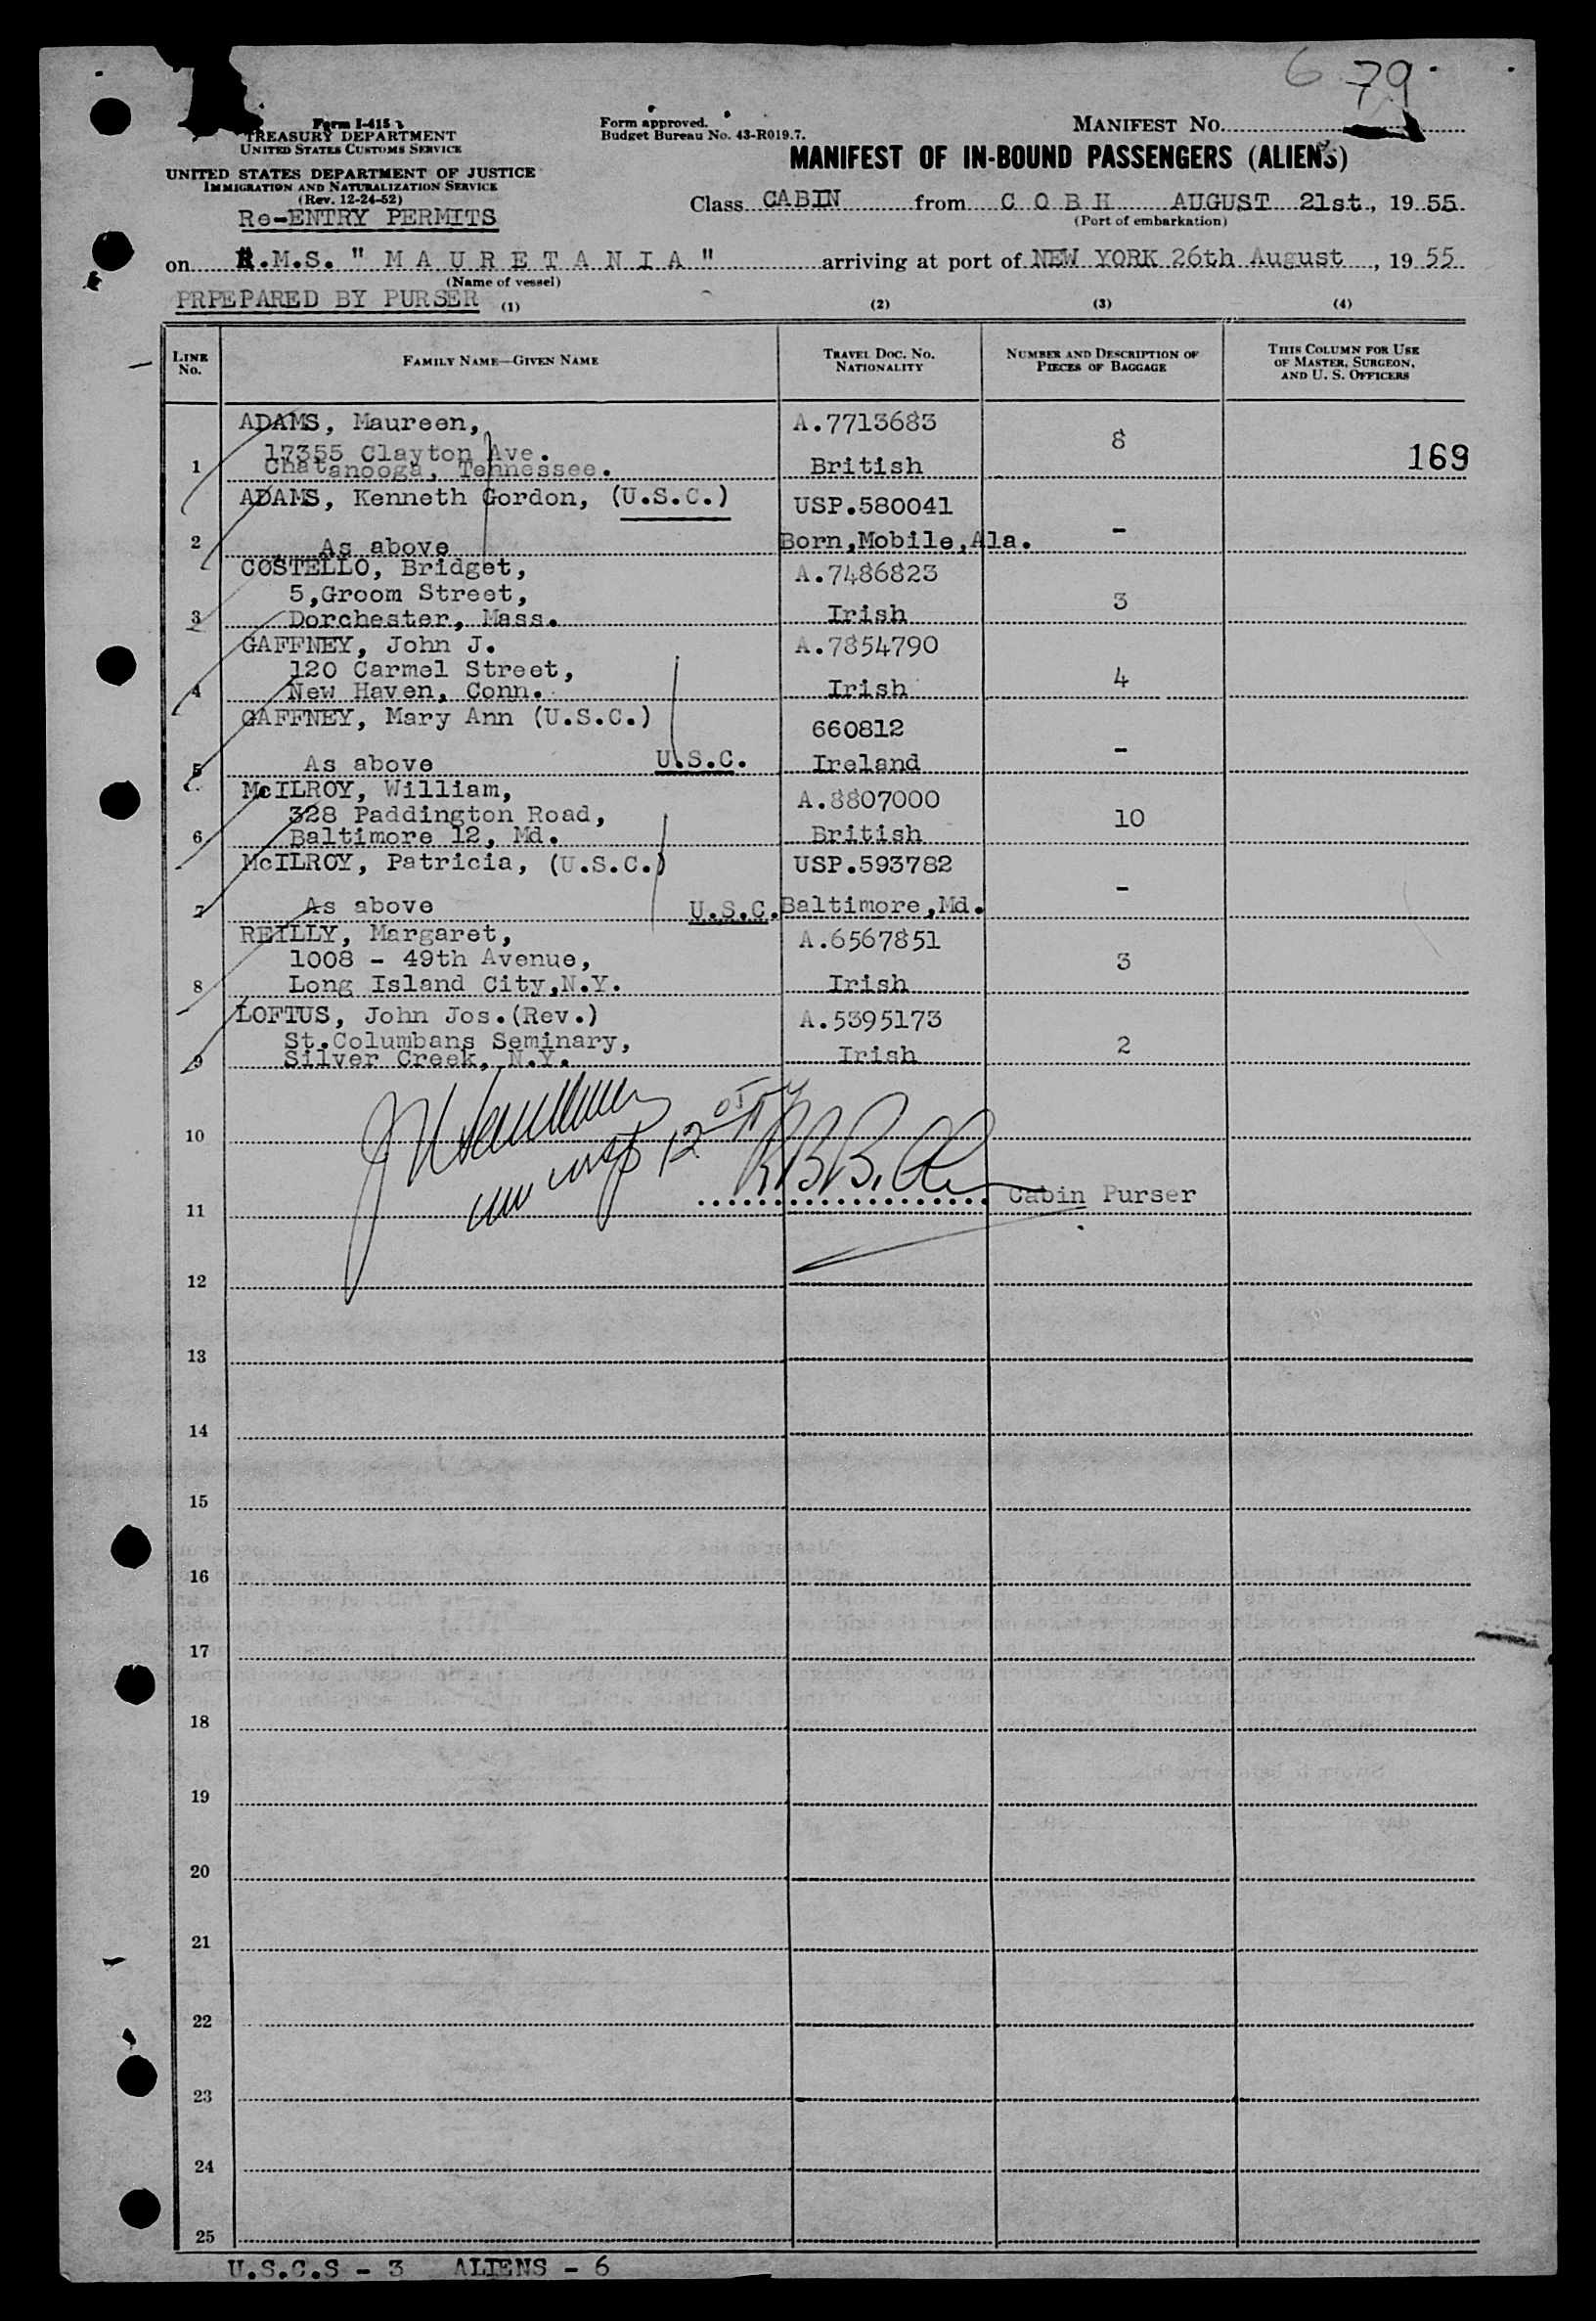 6 79
Form I-415
TREASURY DEPARTMENT
UNITED STATES CUSTOMS SERVICE
UNITED STATES DEPARTMENT OF JUSTICE
IMMIGRATION AND NATURALIZATION SERVICE
(Rev. 12-24-52)
Re-ENTRY PERMITS
Form approved.
Budget Bureau No. 43-R019.7.
MANIFEST NO.
MANIFEST OF IN-BOUND PASSENGERS (ALIENS)
Class CABIN from C O B H AUGUST 21st, 19 55
(Port of embarkation)
on R.M.S. " M A U R E T A N I A " arriving at port of NEW YORK 26th August, 19 55
(Name of vessel)
PRPEPARED BY PURSER (1) (2) (3) (4)
LINE No. FAMILY NAME—GIVEN NAME TRAVEL DOC. NO. NATIONALITY NUMBER AND DESCRIPTION OF PIECES OF BAGGAGE THIS COLUMN FOR USE OF MASTER, SURGEON, AND U. S. OFFICERS
ADAMS, Maureen, A.7713683
17355 Clayton Ave. 8
1 Chatanooga, Tennessee. British 169
ADAMS, Kenneth Gordon, (U.S.C.) USP.580041
2 As above Born,Mobile,Ala. -
COSTELLO, Bridget, A.7486823
5,Groom Street, 3
3 Dorchester, Mass. Irish
GAFFNEY, John J. A.7854790
120 Carmel Street, 4
4 New Haven, Conn. Irish
GAFFNEY, Mary Ann (U.S.C.) 660812
5 As above U.S.C. Ireland -
McILROY, William, A.8807000
328 Paddington Road, 10
6 Baltimore 12, Md. British
McILROY, Patricia, (U.S.C.) USP.593782
7 As above U.S.C. Baltimore,Md. -
REILLY, Margaret, A.6567851
1008 - 49th Avenue, 3
8 Long Island City,N.Y. Irish
LOFTUS, John Jos.(Rev.) A.5395173
St.Columbans Seminary, 2
9 Silver Creek, N.Y. Irish
10
11 Cabin Purser
12
13
14
15
16
17
18
19
20
21
22
23
24
25
U.S.C.S - 3 ALIENS - 6